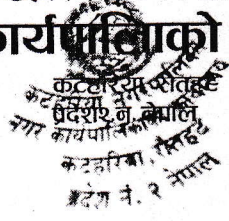 कार्यपालिकाको
कटहरिया, रौतहट
प्रदेश नं. २, नेपाल
नगर कार्यपालिका
कटहरिया, रौतहट
प्रदेश नं. २ नेपाल